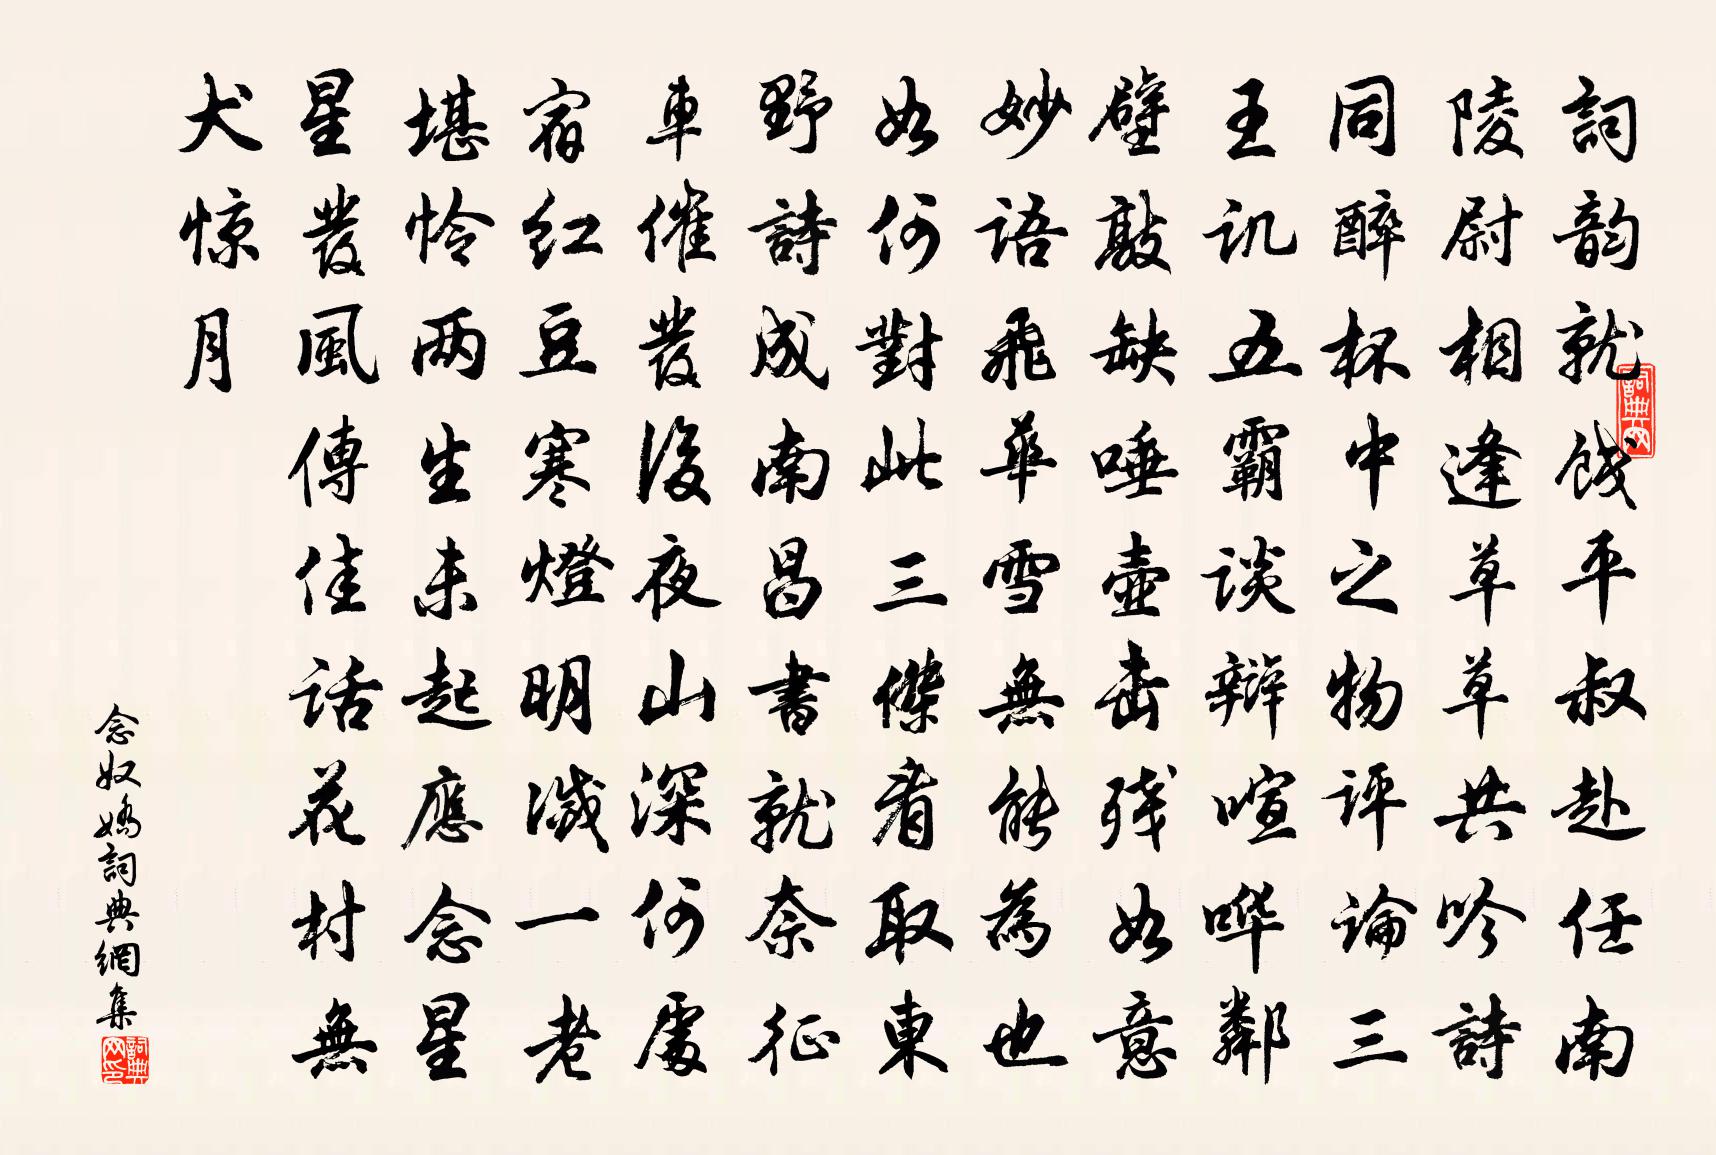 詞韵就餞平叔赴任南
陵尉相逢草草共吟詩
同醉杯中之物评論三
王讥五霸谈辩喧哗鄰
壁敲缺唾壺击残如意
妙语飛華雪無能為也
如何對此三傑看取東
野詩成南昌書就奈征
車催發後夜山深何處
宿红豆寒燈明滅一老
堪怜两生未起應念星
星發風傳佳话花村無
犬惊月
念奴嬌詞典網集
詞典网
詞典网印